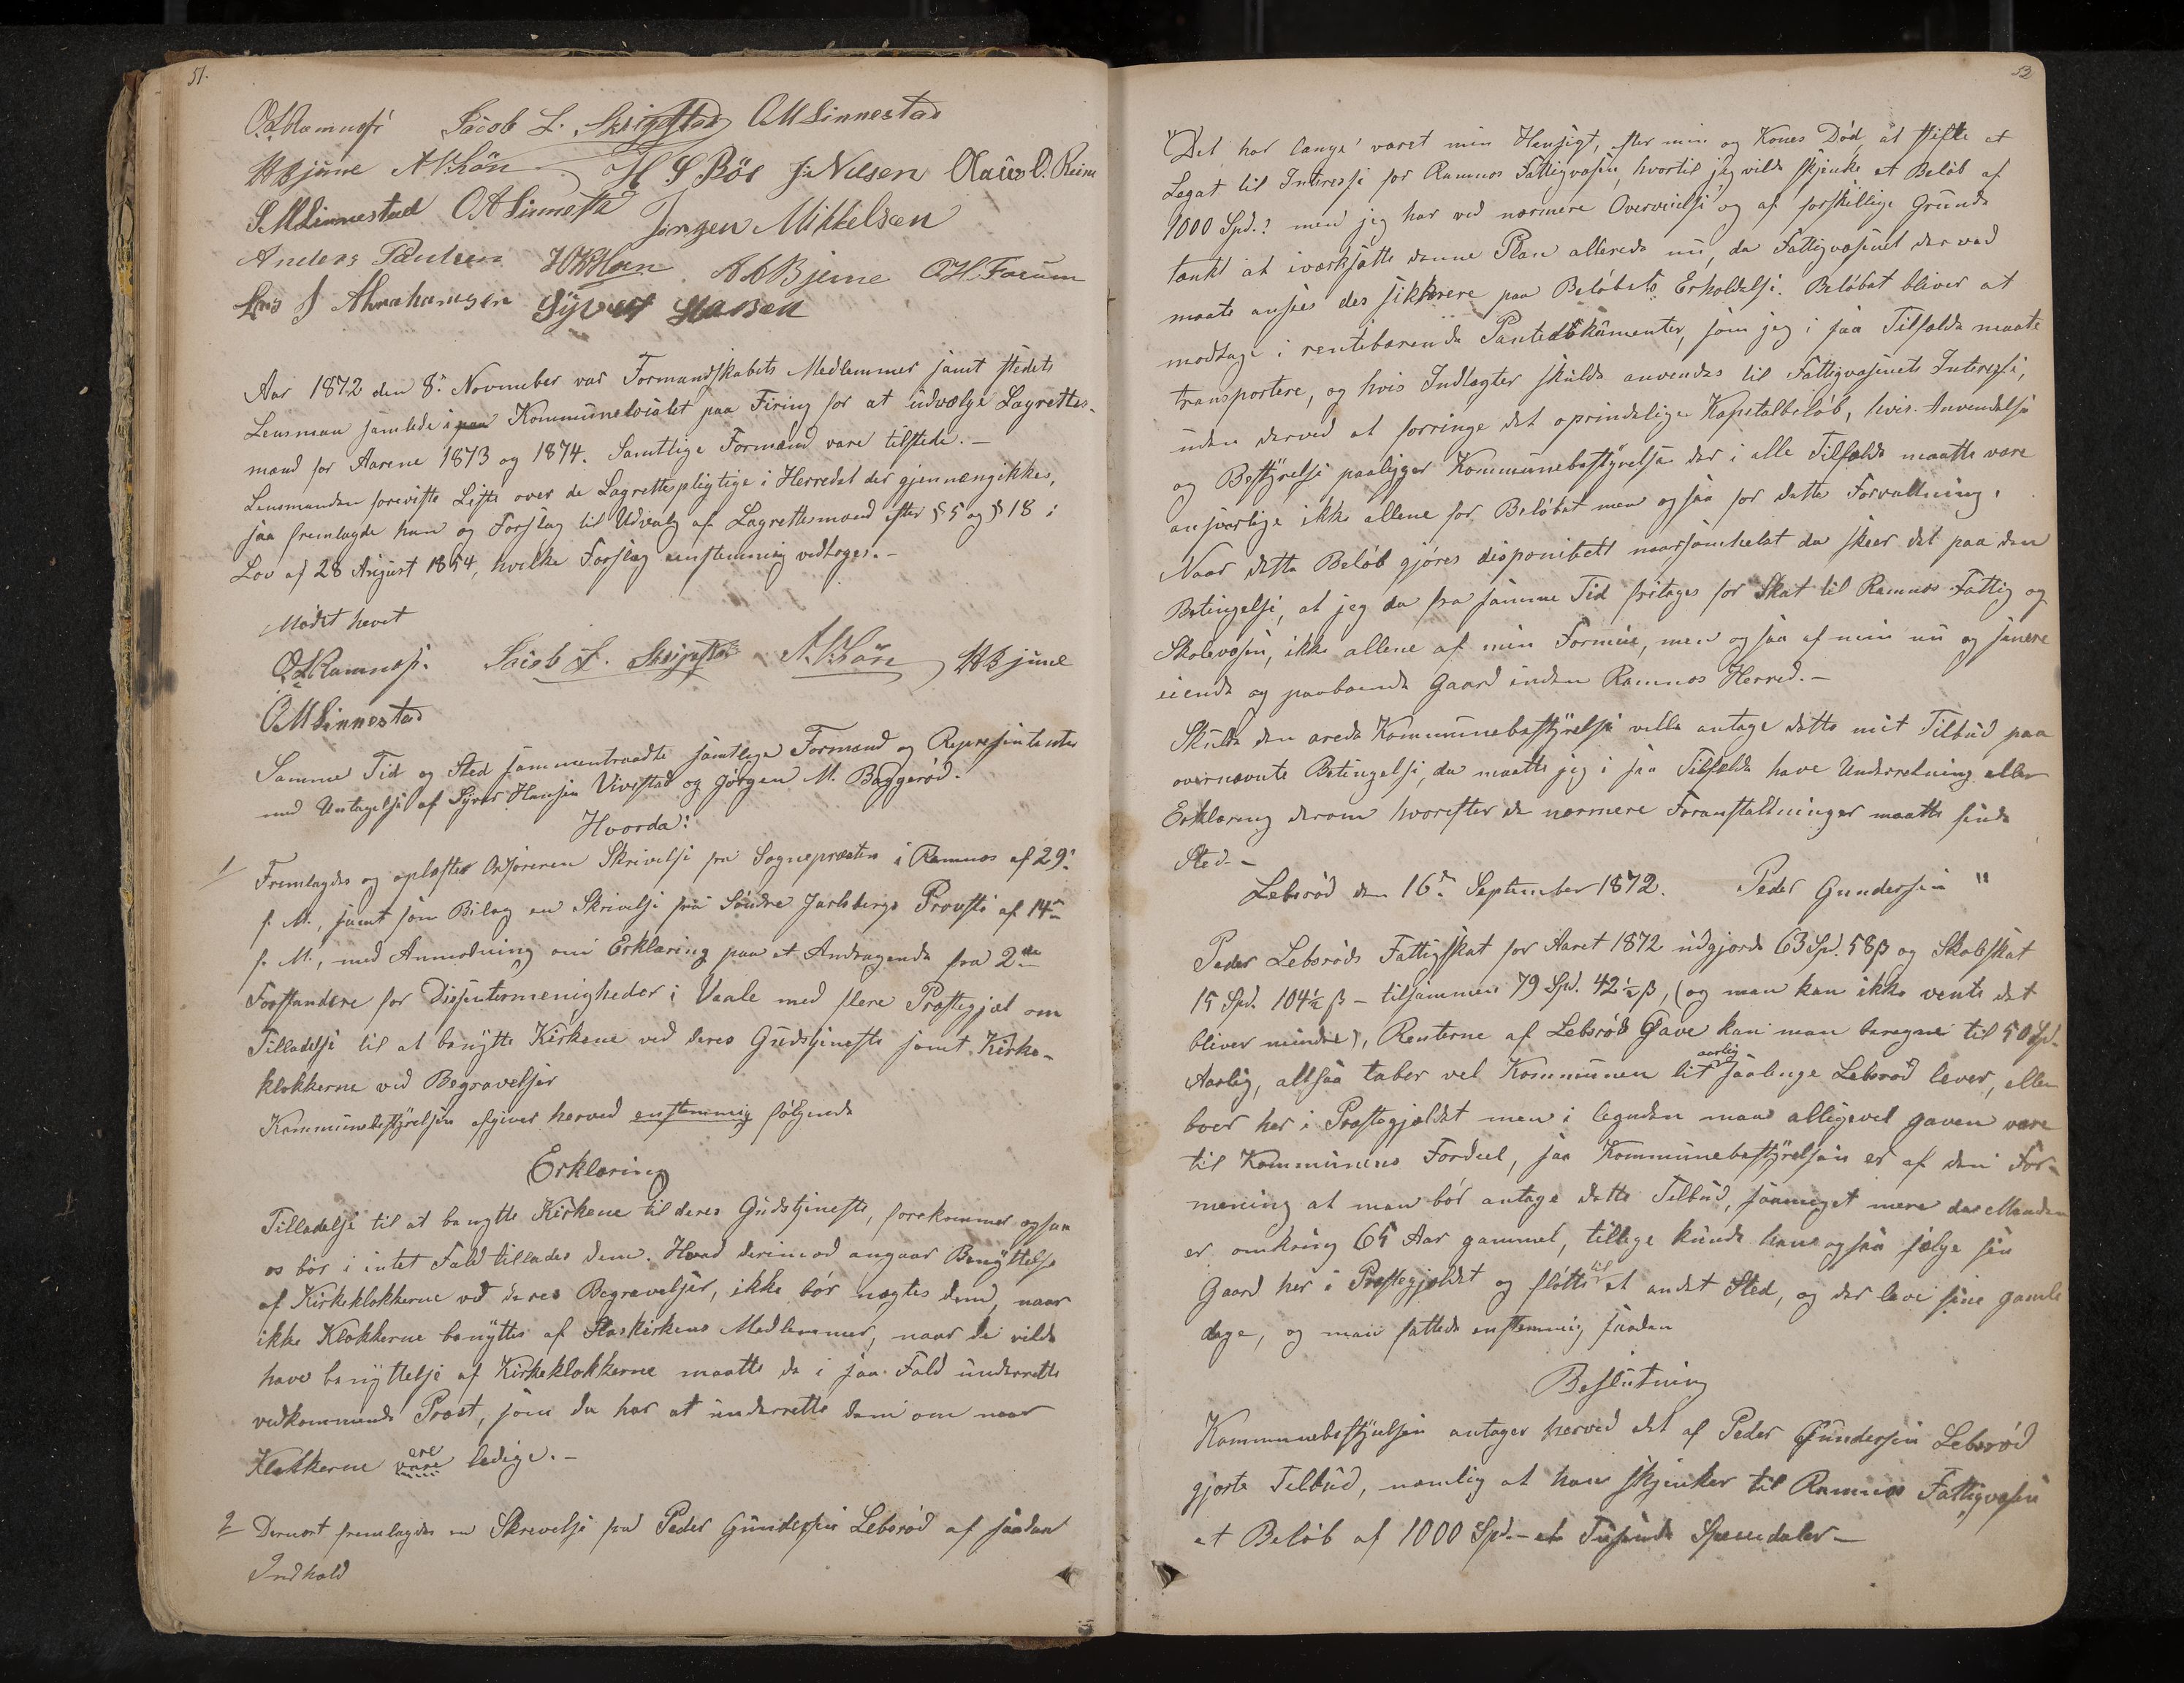 51.
O. L. Ramnæs Jacob L. Skrigstad O M Linnestad
H Bjune A. Krön H S Bös J: Nilsen Claus O. Reine
S M Linnestad O A Linnesta Jörgen Mikkelsen
Anders Paulsen A A Bjerne O. H. Forum
Lars J Abrahamsen Syver Hansen
Aar 1872 den 8de November var Formandskabets Medlemmer samt stedets
Lensman samlede i paa Kommunelocalet paa Firing for at udvælge Lagrettes-
mænd for Aarene 1873 og 1874. Samtlige Formænd vare tilstede. -
Lensmanden foreviste Liste over de Lagrettepligtige i Herredet der gjennemgikkes,
saa fremlagde han og Forslag til Udvalg af Lagrettemænd efter § 5 og § 18 i
Lov af 28 August 1854, hvilke Forslag enstemmig vedtoges. -
Mödet hævet
O. L. Ramnæs. Jacob L. Skrigstad A. Krön H Bjune
O M Linnestad
Samme Tid og Sted sammentraadte samtlige Formænd og Repræsentanter
med Untagelse af Syver Hansen Vivestad og Jörgen M. Baggeröd.
Hvorda:
1 Fremlagdes og oplæstes Ordföreren Skrivelse fra Sognepræsten i Ramnæs af 29de
f. M., samt som Bilag en Skrivelse fra Söndre Jarlsbergs Provsti af 14de
f. M., med Anmodning om Erklæring paa et Andragende fra 2de
Forstandere for Dissentermenigheder i Vaale med flere Præstegjæl om
Tilladelse til at benytte Kirkene ved deres Gudstjeneste samt Kirke-
klokkerne ved Begravelser
Kommunebestyrelsen afgiver herved enstemmig fölgende
Erklæring
Tilladelse til at benytte Kirkene til deres Gudstjeneste, forekommer ogsaa
os bör i intet Fald tillades dem. Hvad derimod angaar Benyttelse
af Kirkeklokkerne ved deres Begravelser, ikke bör nægtes dem, naar
ikke Klokkerne benyttes af Statskirkens Medlemmer, naar de vilde
have benyttelse af Kirkeklokkerne maatte de i saa Fald underrette
vedkommende Præst, som da har at underrette dem om naar
Klokkerne vare ere ledige. -
2 Dernæst fremlagdes en Skrivelse fra Peder Gundersen Lebsröd af saadan
Indhold
52
"Det har længe været min Hensigt, efter min og Kones Död, at stifte et
Legat til Interesse for Ramnæs Fattigvæsen, hvortil jeg vilde skjenke et Belöb af
1000 Spd.: men jeg har ved nærmere Overveielse og af forskillige Grunde
tænkt at iværksætte denne Plan allerede nu, da Fattigvæsenet derved
maate ansees des sikkrere paa Belöbets Erholdelse. Belöbet bliver at
modtage i rentebærende Pantedokumenter, som jeg i saa Tilfælde maate
transportere, og hvis Indtægter skulde anvendes til Fattigvæsenets Interesse,
uden derved at forringe det oprindelige Kapitalbelöb, hvis Anvendelse
og Bestyrelse paaligger Kommunebestyrelse der i alle Tilfælde maatte være
ansvarlige ikke allene for Belöbet men ogsaa for dette Forvaltning.
Naar dette Belöb gjöres disponibelt naarsomhelst da skeer det paa den
Betingelse, at jeg da fra samme Tid fritages for Skat til Ramnæs Fattig og
Skolevæsen, ikke allene af min Formue, men ogsaa af min nu og senere
eiende og paaboende Gaard inden Ramnæs Herred. -
Skulde den ærede Kommunebestyrelse ville antage dette mit Tilbud paa
overnævnte Betingelse, da maatte jeg i saa Tilfælde have Underretning eller
Erklæring derom hvorefter de nærmere Foranstaltninger maatte finde
Sted. -
Lebsröd den 16de September 1872. Peder Gundersen "
Peder Lebsröds Fattigskat for Aaret 1872 udgjorde 63 Spd. 58 ß og Skolskat
15 Spd. 104½ ß - tilsammen 79 Spd. 42½ ß, (og man kan ikke vente det
bliver mindre), Renterne af Lebsröds Gave kan man beregne til 50 Spd.
Aarlig, altsaa taber vel Kommunen lit aarlig saalenge Lebsröd lever, eller
boer her i Præstegjældet men i legnden maa alligevel gaven være
til Kommunens Fordeel, saa Kommunebestyrelsen er af den For-
mening at man bör antage dette Tilbud, saameget mere der Manden
er omkring 65 Aar gammel, tillige kunde han ogsaa sælge sin
Gaard her i Præstegjældet og flötte til et andet Sted, og der leve sine gamle
dage, og man fattede enstemmig saadan
Beslutning
Kommunebestyrelsen antager herved det af Peder Gundersen Lebsröd
gjorte Tilbud, nemlig at han skjenker til Ramnæs Fattigvæsen
et Belöb af 1000 Spd. - et Tusinde Speciedaler -